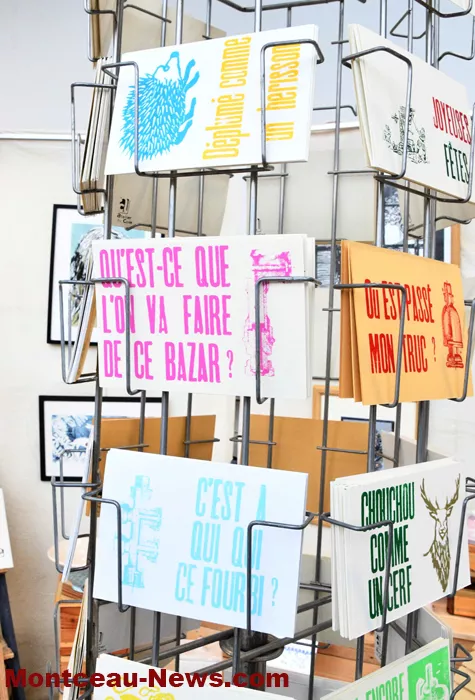 Déplumé comme
un hérisson
JOYEUSES
FÊTES
QU'EST-CE QUE
L'ON VA FAIRE
DE CE BAZAR ?
OÙ EST PASSÉ
MON TRUC ?
C'EST À
QUI QUI
CE FOURBI ?
CHOUCHOU
COMME
UN CERF
ENCORE
Montceau-News.com